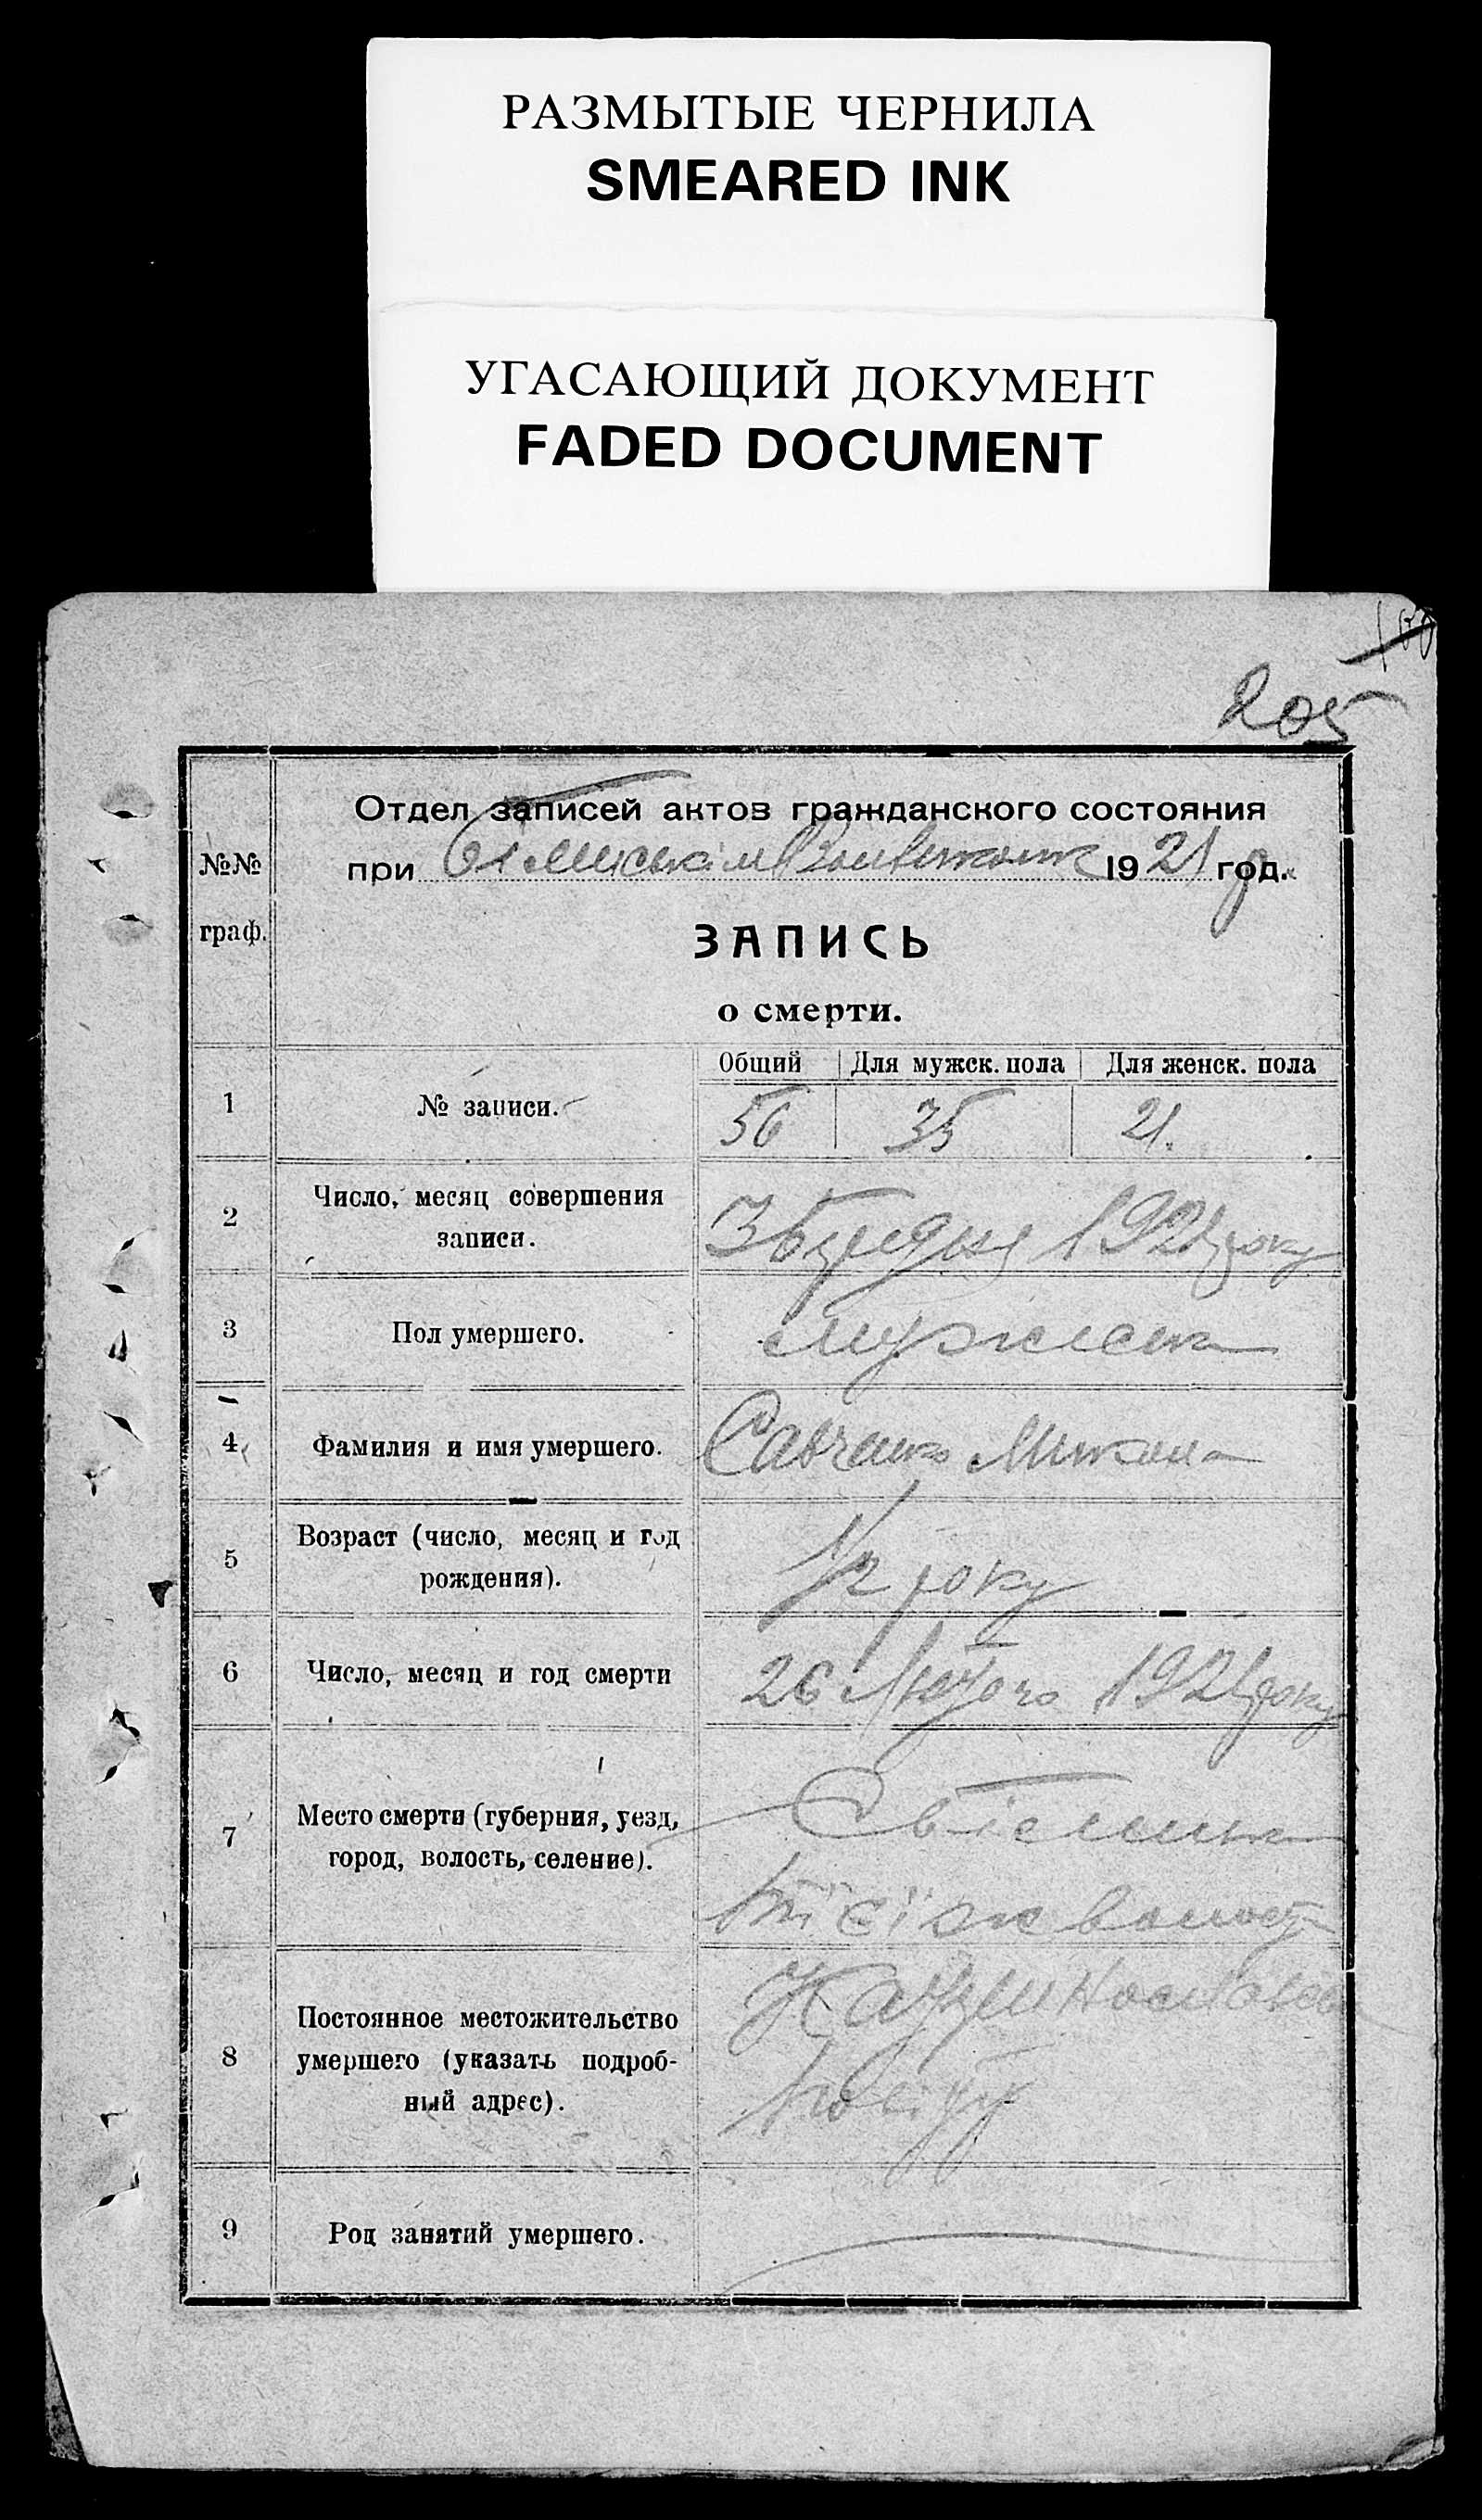 РАЗМЫТЫЕ ЧЕРНИЛА
SMEARED INK
УГАСАЮЩИЙ ДОКУМЕНТ
FADED DOCUMENT
100
205
№№
граф.
Отдел записей актов гражданского состояния
при 1921 год.
ЗАПИСЬ
о смерти.
Общий Для мужск. пола Для женск. пола
1 № записи. 56 35 21.
2 Число, месяц совершения
записи.
3 1921 року
3 Пол умершего.
4 Фамилия и имя умершего. Савченко Микола
5 Возраст (число, месяц и год
рождения).
1/2 року
6 Число, месяц и год смерти 26 Лютого 1921 року
7 Место смерти (губерния, уезд,
город, волость, селение).
волости
8 Постоянное местожительство
умершего (указать подроб-
ный адрес).
повіту
9 Род занятий умершего.